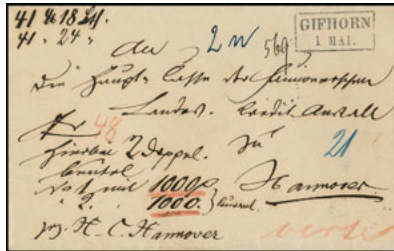 41 18 Lt.
41 " 24 "
GIFHORN
1 MAI.
An 2 N 569
die Haupt-Casse der Hannoverschen
Landes-Credit-Anstalt
48
hierbei 2 Doppel- zu 21
beutel
No 1 mit 1000 Hannover.
" 2. " 1000.
H. C. Hannover